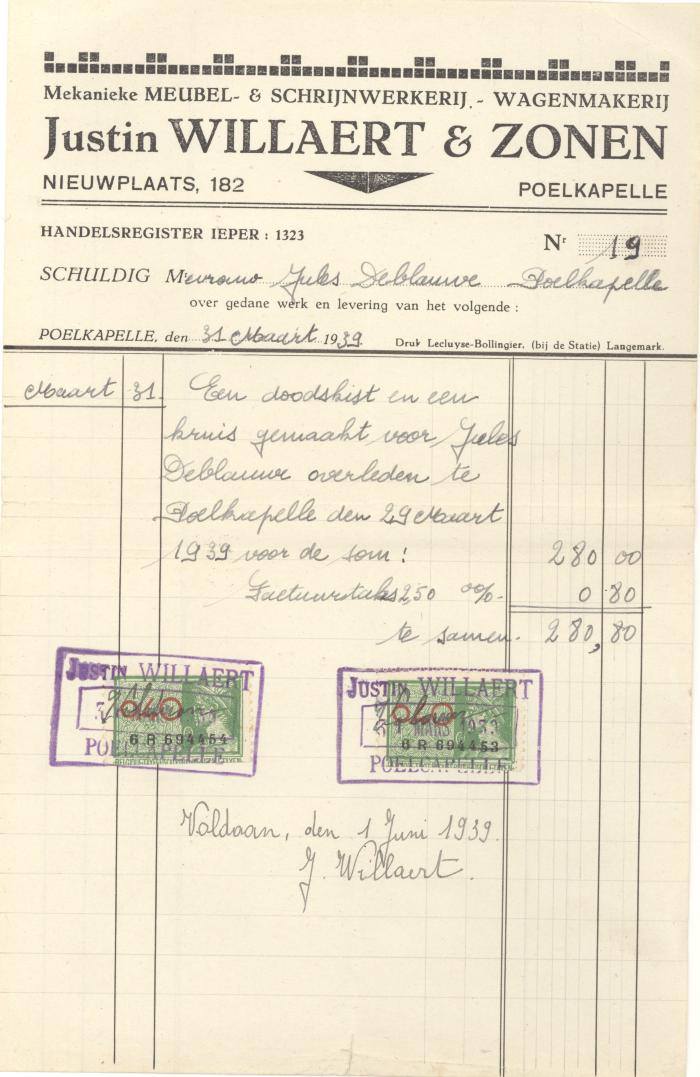 Mekanieke MEUBEL- & SCHRIJNWERKERIJ. - WAGENMAKERIJ
Justin WILLAERT & ZONEN
NIEUWPLAATS, 182 POELKAPELLE
HANDELSREGISTER IEPER : 1323 Nr 19
SCHULDIG Mevrouw Jules Deblauwe Poelkapelle
over gedane werk en levering van het volgende :
POELKAPELLE, den 31 Maart 1939 Druk Lecluyse-Bollingier, (bij de Statie) Langemark.
Maart 31 Een doodskist en een
kruis gemaakt voor Jules
Deblauwe overleden te
Poelkapelle den 29 Maart
1939 voor de som: 280 00
Factuurtaks 2,50 00/00 - 0 80
te samen - 280,80
JUSTIN WILLAERT
0.40
6 R 694454
POELCAPELLE
JUSTIN WILLAERT
0.40
31 MARS 1939
6 R 694453
POELCAPELLE
Voldaan, den 1 Juni 1939.
J. Willaert.